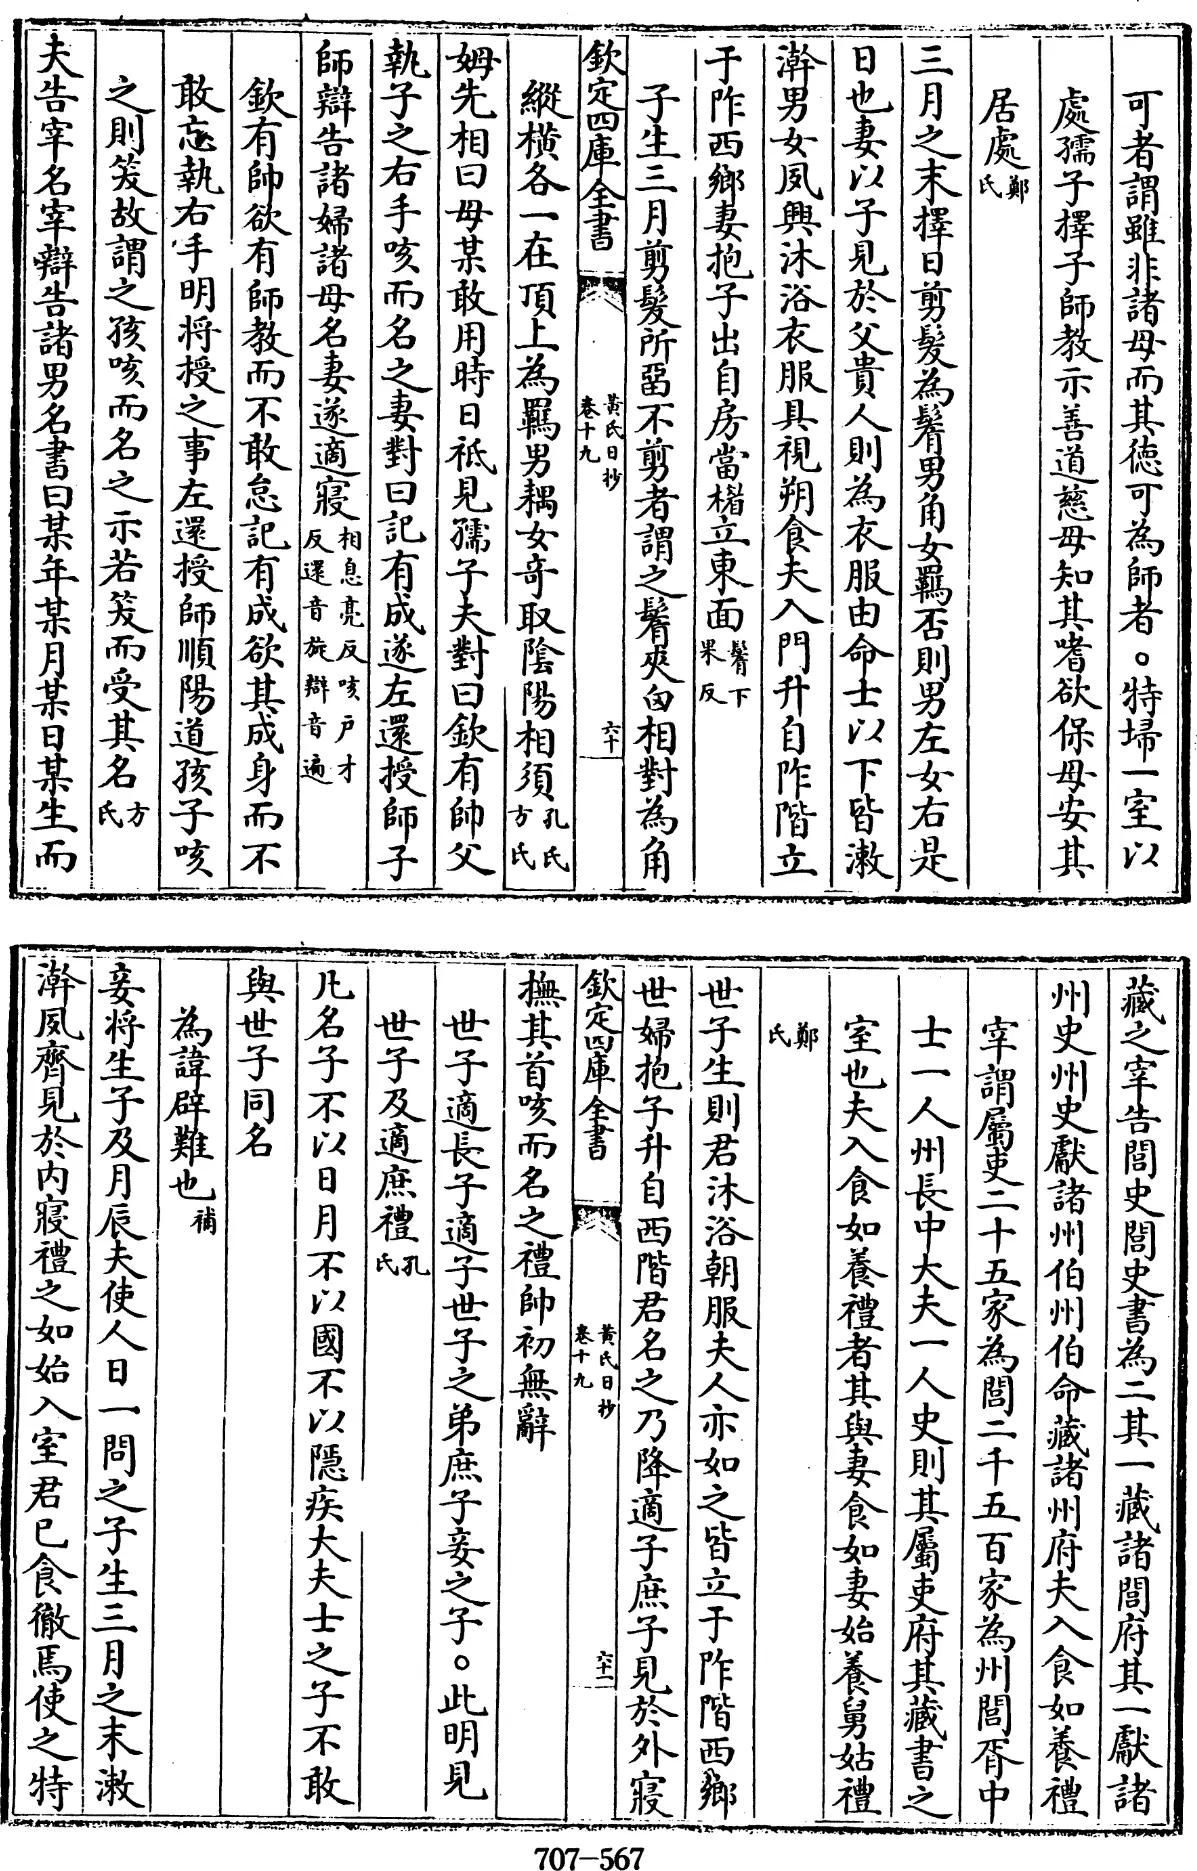 可者謂雖非諸母而其徳可為師者○特埽一室以
處孺子擇子師教示善道慈母知其嗜欲保母安其
居處鄭氏
三月之末擇日剪髮為鬌男角女羈否則男左女右是
日也妻以子見於父貴人則為衣服由命士以下皆漱
澣男女夙興沐浴衣服具視朔食夫入門升自阼階立
于阼西鄉妻抱子出自房當楣立東面鬌下果反
子生三月剪髮所畱不剪者謂之鬌夾囟相對為角
欽定四庫全書 黃氏日抄卷十九 六十
縱橫各一在頂上為羈男耦女竒取陰陽相須孔氏方氏
姆先相曰母某敢用時日祗見孺子夫對曰欽有帥父
執子之右手咳而名之妻對曰記有成遂左還授師子
師辯告諸婦諸母名妻遂適寢相息亮反咳戶才反還音旋辯音遍
欽有帥欲有師教而不敢怠記有成欲其成身而不
敢忘執右手明将授之事左還授師順陽道孩子咳
之則笑故謂之孩咳而名之示若笑而受其名方氏
夫告宰名宰辯告諸男名書曰某年某月某日某生而
藏之宰告閭史閭史書為二其一藏諸閭府其一獻諸
州史州史獻諸州伯州伯命藏諸州府夫入食如養禮
宰謂屬吏二十五家為閭二千五百家為州閭胥中
士一人州長中大夫一人史則其屬吏府其藏書之
室也夫入食如養禮者其與妻食如妻始養舅姑禮
鄭氏
世子生則君沐浴朝服夫人亦如之皆立于阼階西鄉
世婦抱子升自西階君名之乃降適子庶子見於外寢
欽定四庫全書 黃氏日抄卷十九 六十一
撫其首咳而名之禮帥初無辭
世子適長子適子世子之弟庶子妾之子○此明見
世子及適庶禮孔氏
凡名子不以日月不以國不以隱疾大夫士之子不敢
與世子同名
為諱辟難也補
妾将生子及月辰夫使人日一問之子生三月之末漱
澣夙齊見於内寢禮之如始入室君已食徹焉使之特
707-567